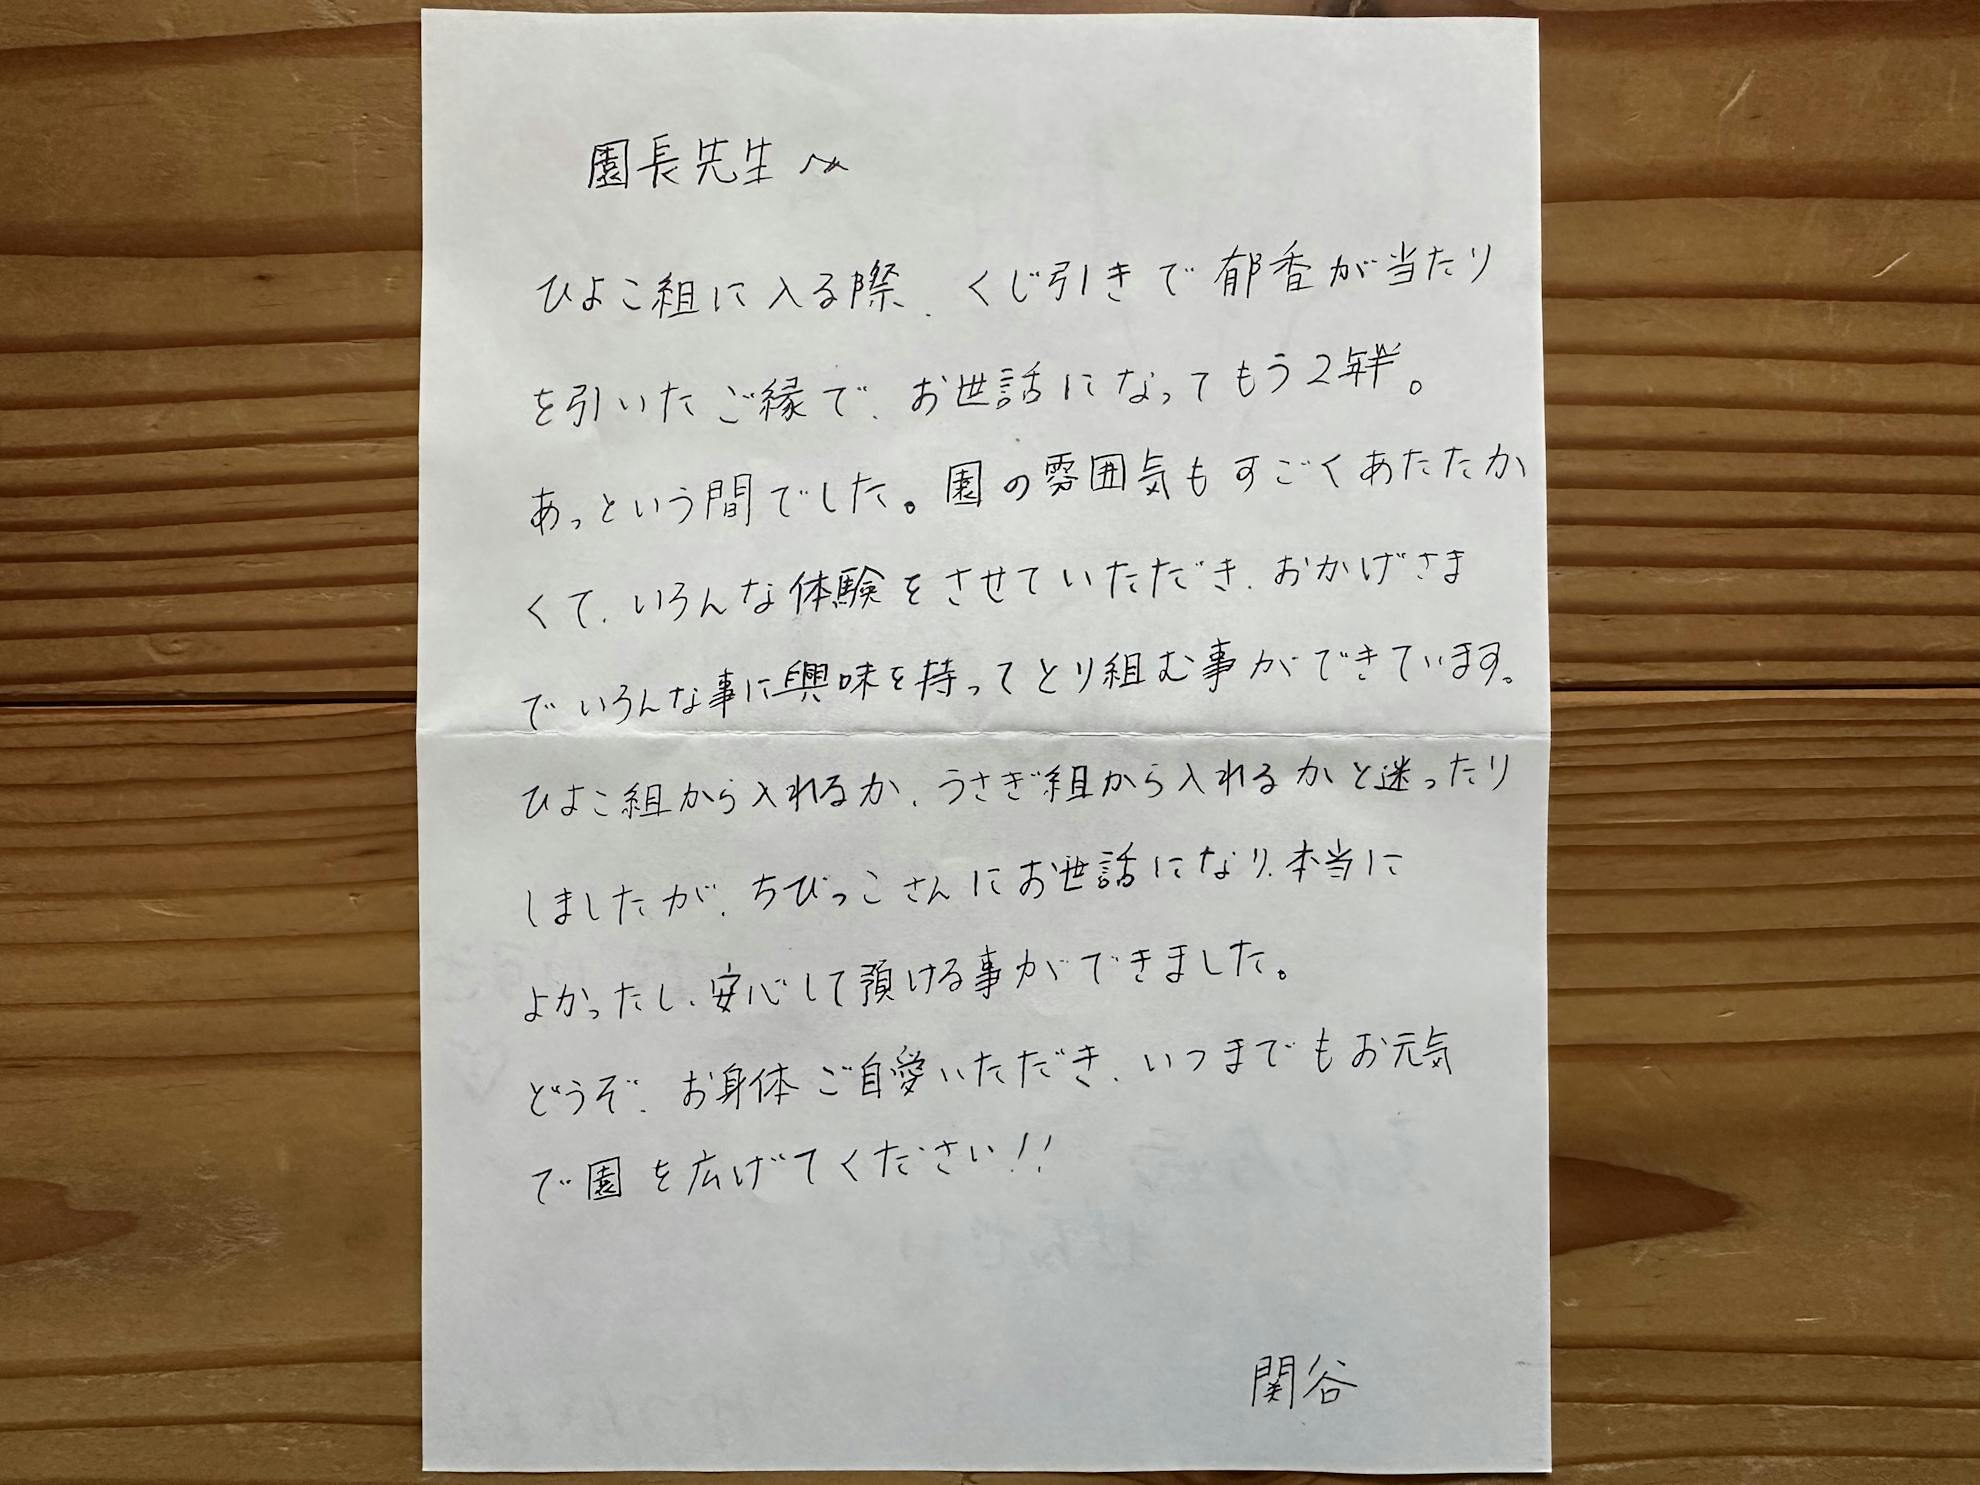 園長先生へ
ひよこ組に入る際、くじ引きで郁香が当たり
を引いたご縁で、お世話になってもう2年半。
あっという間でした。園の雰囲気もすごくあたたか
くて、いろんな体験をさせていただき、おかげさま
でいろんな事に興味を持ってとり組む事ができています。
ひよこ組から入れるか、うさぎ組から入れるかと迷ったり
しましたが、ちびっこさんにお世話になり、本当に
よかったし、安心して預ける事ができました。
どうぞ、お身体ご自愛いただき、いつまでもお元気
で園を広げてください!!
関谷